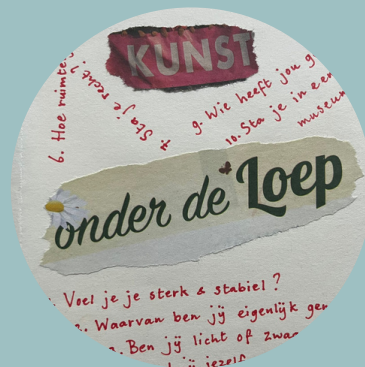 KUNST
6. Hoe ruimte
7. Sta je recht?
9. Wie heeft jou g
10. Sta je in een
museum
onder de Loep
Voel je je sterk & stabiel?
Waarvan ben jij eigenlijk ge
Ben jij licht of zwaa
jezelf